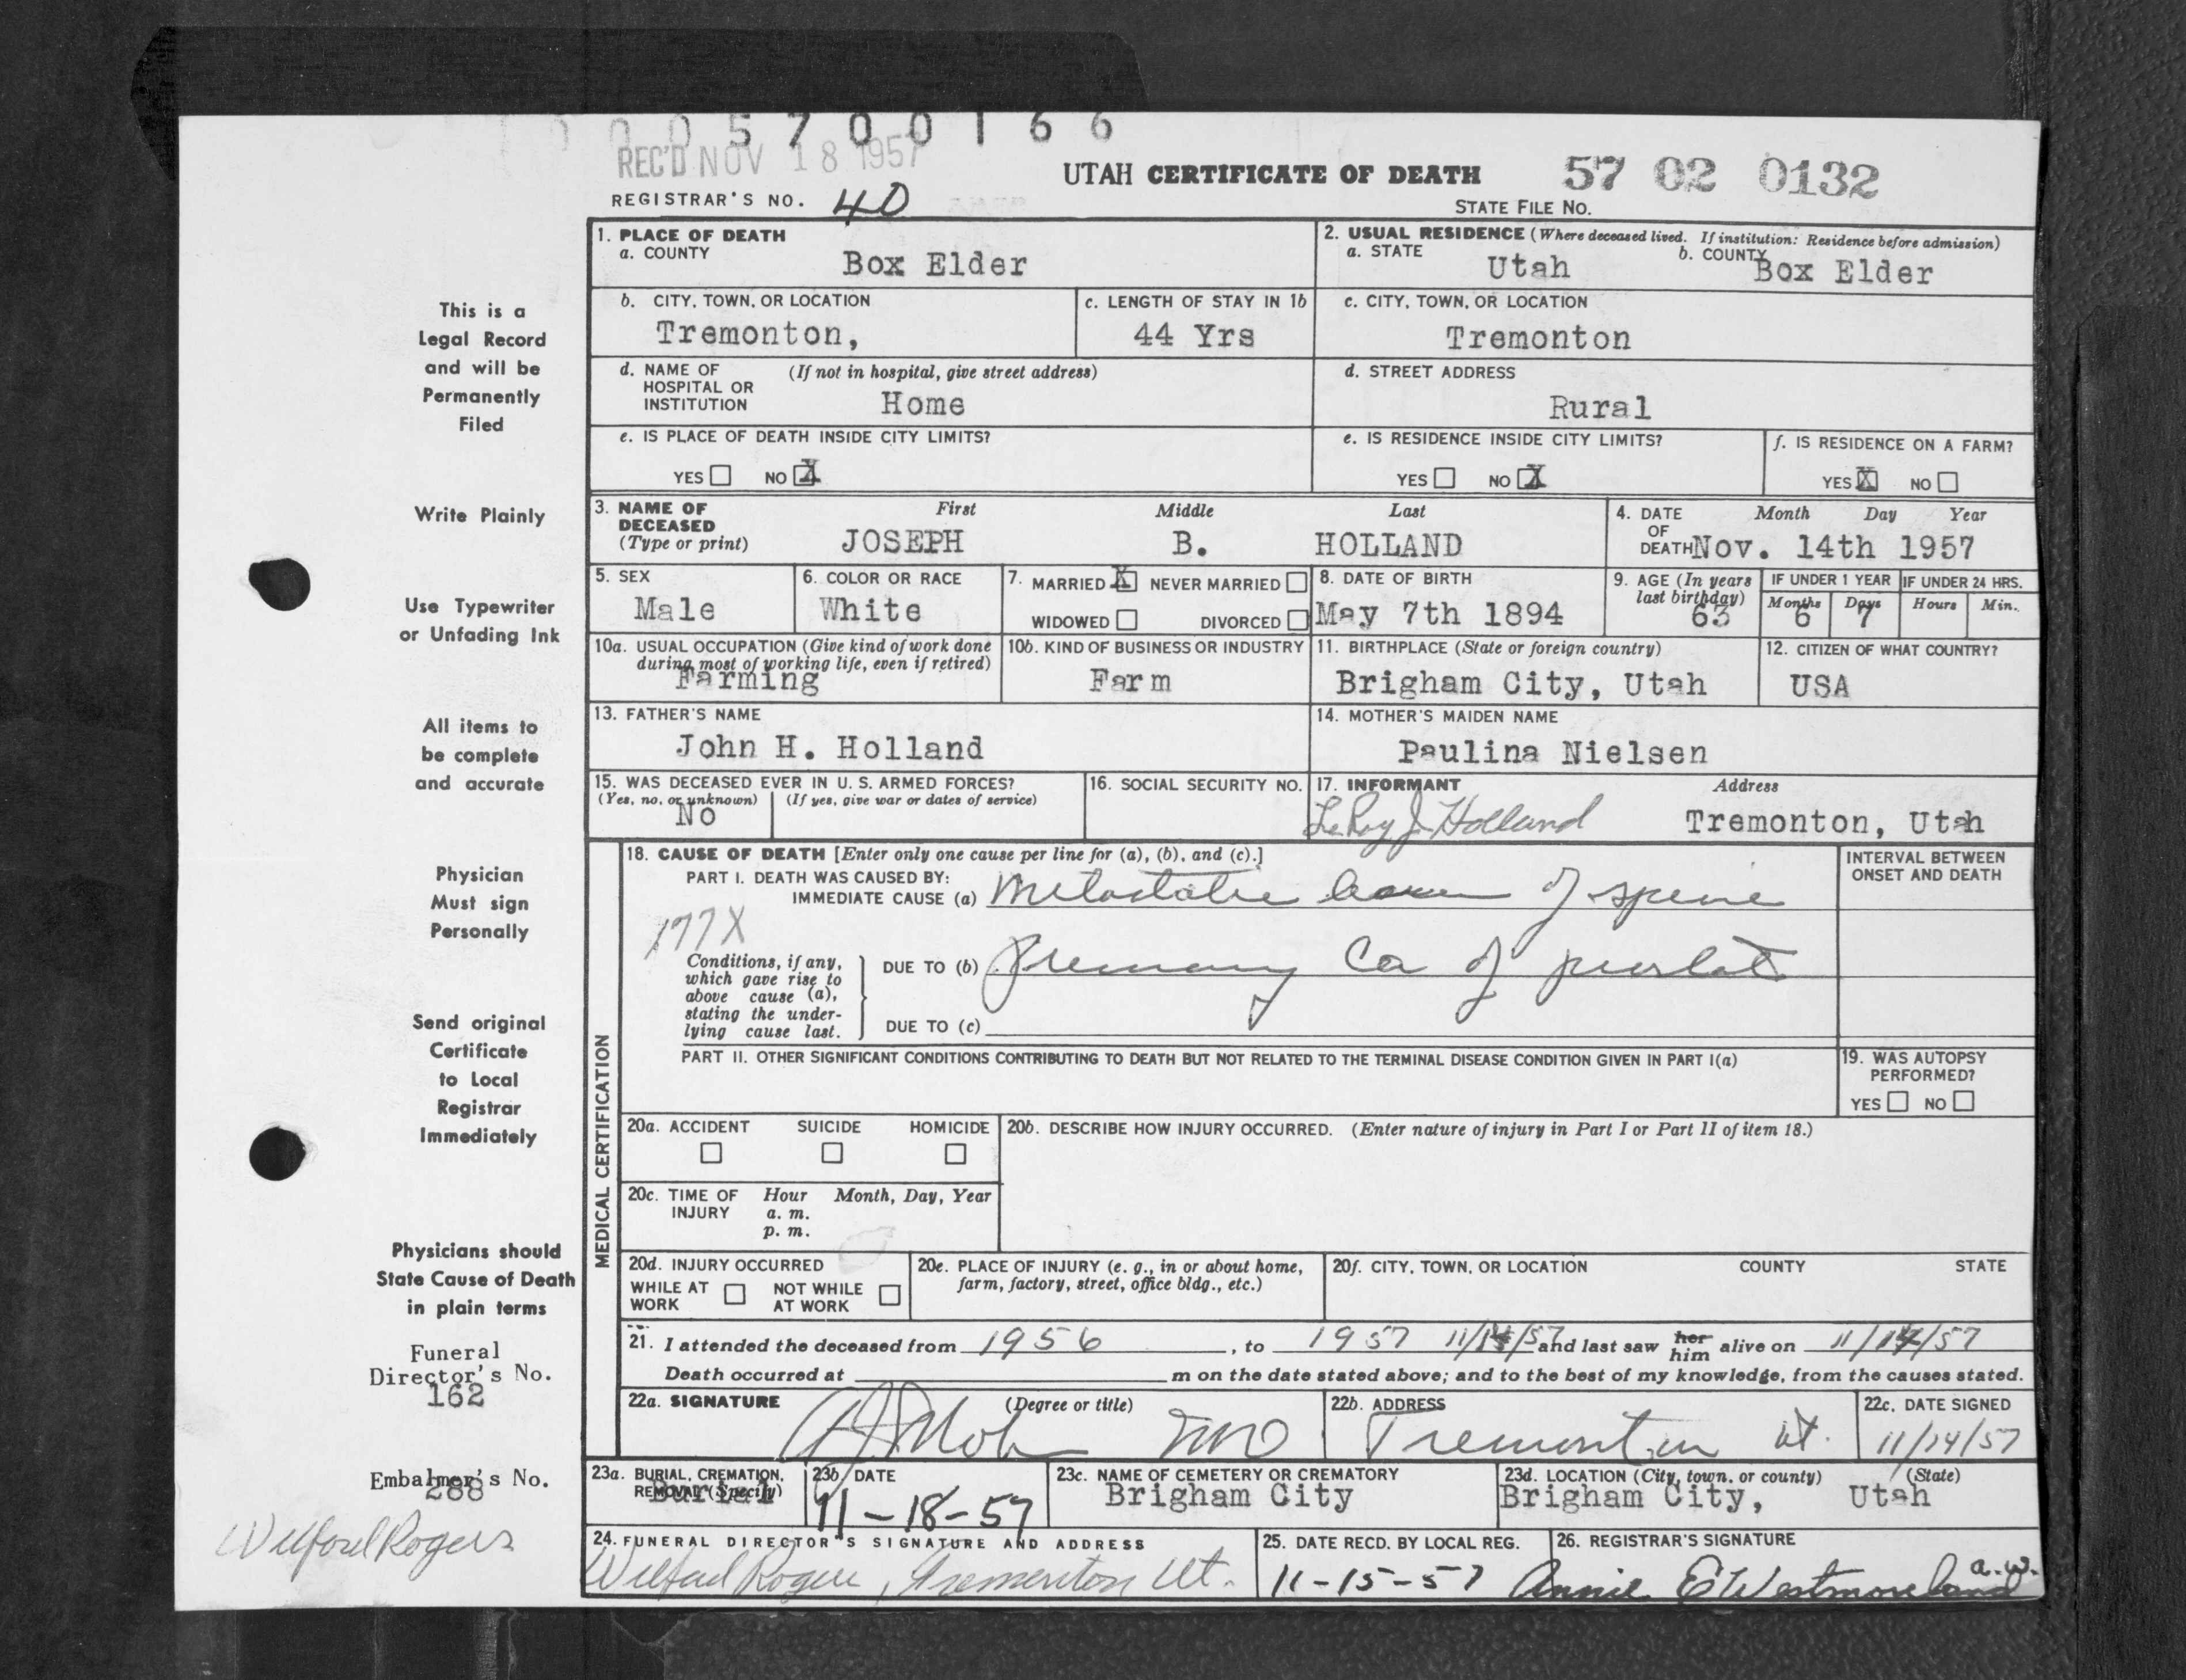 0 0 0 5 7 0 0 1 6 6
REC'D NOV 18 1957
UTAH CERTIFICATE OF DEATH 57 02 0132
REGISTRAR'S NO. 40 STATE FILE NO.
1. PLACE OF DEATH
a. COUNTY Box Elder
2. USUAL RESIDENCE (Where deceased lived. If institution: Residence before admission)
a. STATE Utah b. COUNTY Box Elder
b. CITY, TOWN, OR LOCATION
Tremonton,
c. LENGTH OF STAY IN 1b
44 Yrs
c. CITY, TOWN, OR LOCATION
Tremonton
d. NAME OF (If not in hospital, give street address)
HOSPITAL OR
INSTITUTION Home
d. STREET ADDRESS
Rural
e. IS PLACE OF DEATH INSIDE CITY LIMITS?
YES NO X
e. IS RESIDENCE INSIDE CITY LIMITS?
YES NO X
f. IS RESIDENCE ON A FARM?
YES X NO
3. NAME OF First Middle Last
DECEASED
(Type or print) JOSEPH B. HOLLAND
4. DATE Month Day Year
OF
DEATH Nov. 14th 1957
5. SEX
Male
6. COLOR OR RACE
White
7. MARRIED X NEVER MARRIED
WIDOWED DIVORCED
8. DATE OF BIRTH
May 7th 1894
9. AGE (In years
last birthday)
63
IF UNDER 1 YEAR
Months Days
6 7
IF UNDER 24 HRS.
Hours Min.
10a. USUAL OCCUPATION (Give kind of work done
during most of working life, even if retired)
Farming
10b. KIND OF BUSINESS OR INDUSTRY
Farm
11. BIRTHPLACE (State or foreign country)
Brigham City, Utah
12. CITIZEN OF WHAT COUNTRY?
USA
13. FATHER'S NAME
John H. Holland
14. MOTHER'S MAIDEN NAME
Paulina Nielsen
15. WAS DECEASED EVER IN U. S. ARMED FORCES?
(Yes, no, or unknown) (If yes, give war or dates of service)
No
16. SOCIAL SECURITY NO.
17. INFORMANT Address
LeRoy J. Holland Tremonton, Utah
MEDICAL CERTIFICATION
18. CAUSE OF DEATH [Enter only one cause per line for (a), (b), and (c).]
PART I. DEATH WAS CAUSED BY:
IMMEDIATE CAUSE (a) Metastatic of spine
INTERVAL BETWEEN
ONSET AND DEATH
177X
Conditions, if any,
which gave rise to
above cause (a),
stating the under-
lying cause last.
DUE TO (b) Primary Ca of prostate
DUE TO (c)
PART II. OTHER SIGNIFICANT CONDITIONS CONTRIBUTING TO DEATH BUT NOT RELATED TO THE TERMINAL DISEASE CONDITION GIVEN IN PART I(a)
19. WAS AUTOPSY
PERFORMED?
YES NO
20a. ACCIDENT SUICIDE HOMICIDE
20b. DESCRIBE HOW INJURY OCCURRED. (Enter nature of injury in Part I or Part II of item 18.)
20c. TIME OF Hour Month, Day, Year
INJURY a. m.
p. m.
20d. INJURY OCCURRED
WHILE AT NOT WHILE
WORK AT WORK
20e. PLACE OF INJURY (e. g., in or about home,
farm, factory, street, office bldg., etc.)
20f. CITY, TOWN, OR LOCATION COUNTY STATE
21. I attended the deceased from 1956, to 1957 11/14/57 and last saw her him alive on 11/14/57
Death occurred at m on the date stated above; and to the best of my knowledge, from the causes stated.
22a. SIGNATURE (Degree or title)
MD
22b. ADDRESS
Tremonton Ut.
22c. DATE SIGNED
11/14/57
23a. BURIAL, CREMATION,
REMOVAL (Specify)
Burial
23b. DATE
11-18-57
23c. NAME OF CEMETERY OR CREMATORY
Brigham City
23d. LOCATION (City, town, or county) (State)
Brigham City, Utah
24. FUNERAL DIRECTOR'S SIGNATURE AND ADDRESS
Wilford Rogers, Tremonton Ut.
25. DATE RECD. BY LOCAL REG.
11-15-57
26. REGISTRAR'S SIGNATURE
Annie E Westmoreland a.w.
This is a
Legal Record
and will be
Permanently
Filed
Write Plainly
Use Typewriter
or Unfading Ink
All items to
be complete
and accurate
Physician
Must sign
Personally
Send original
Certificate
to Local
Registrar
Immediately
Physicians should
State Cause of Death
in plain terms
Funeral
Director's No.
162
Embalmer's No.
288
Wilford Rogers